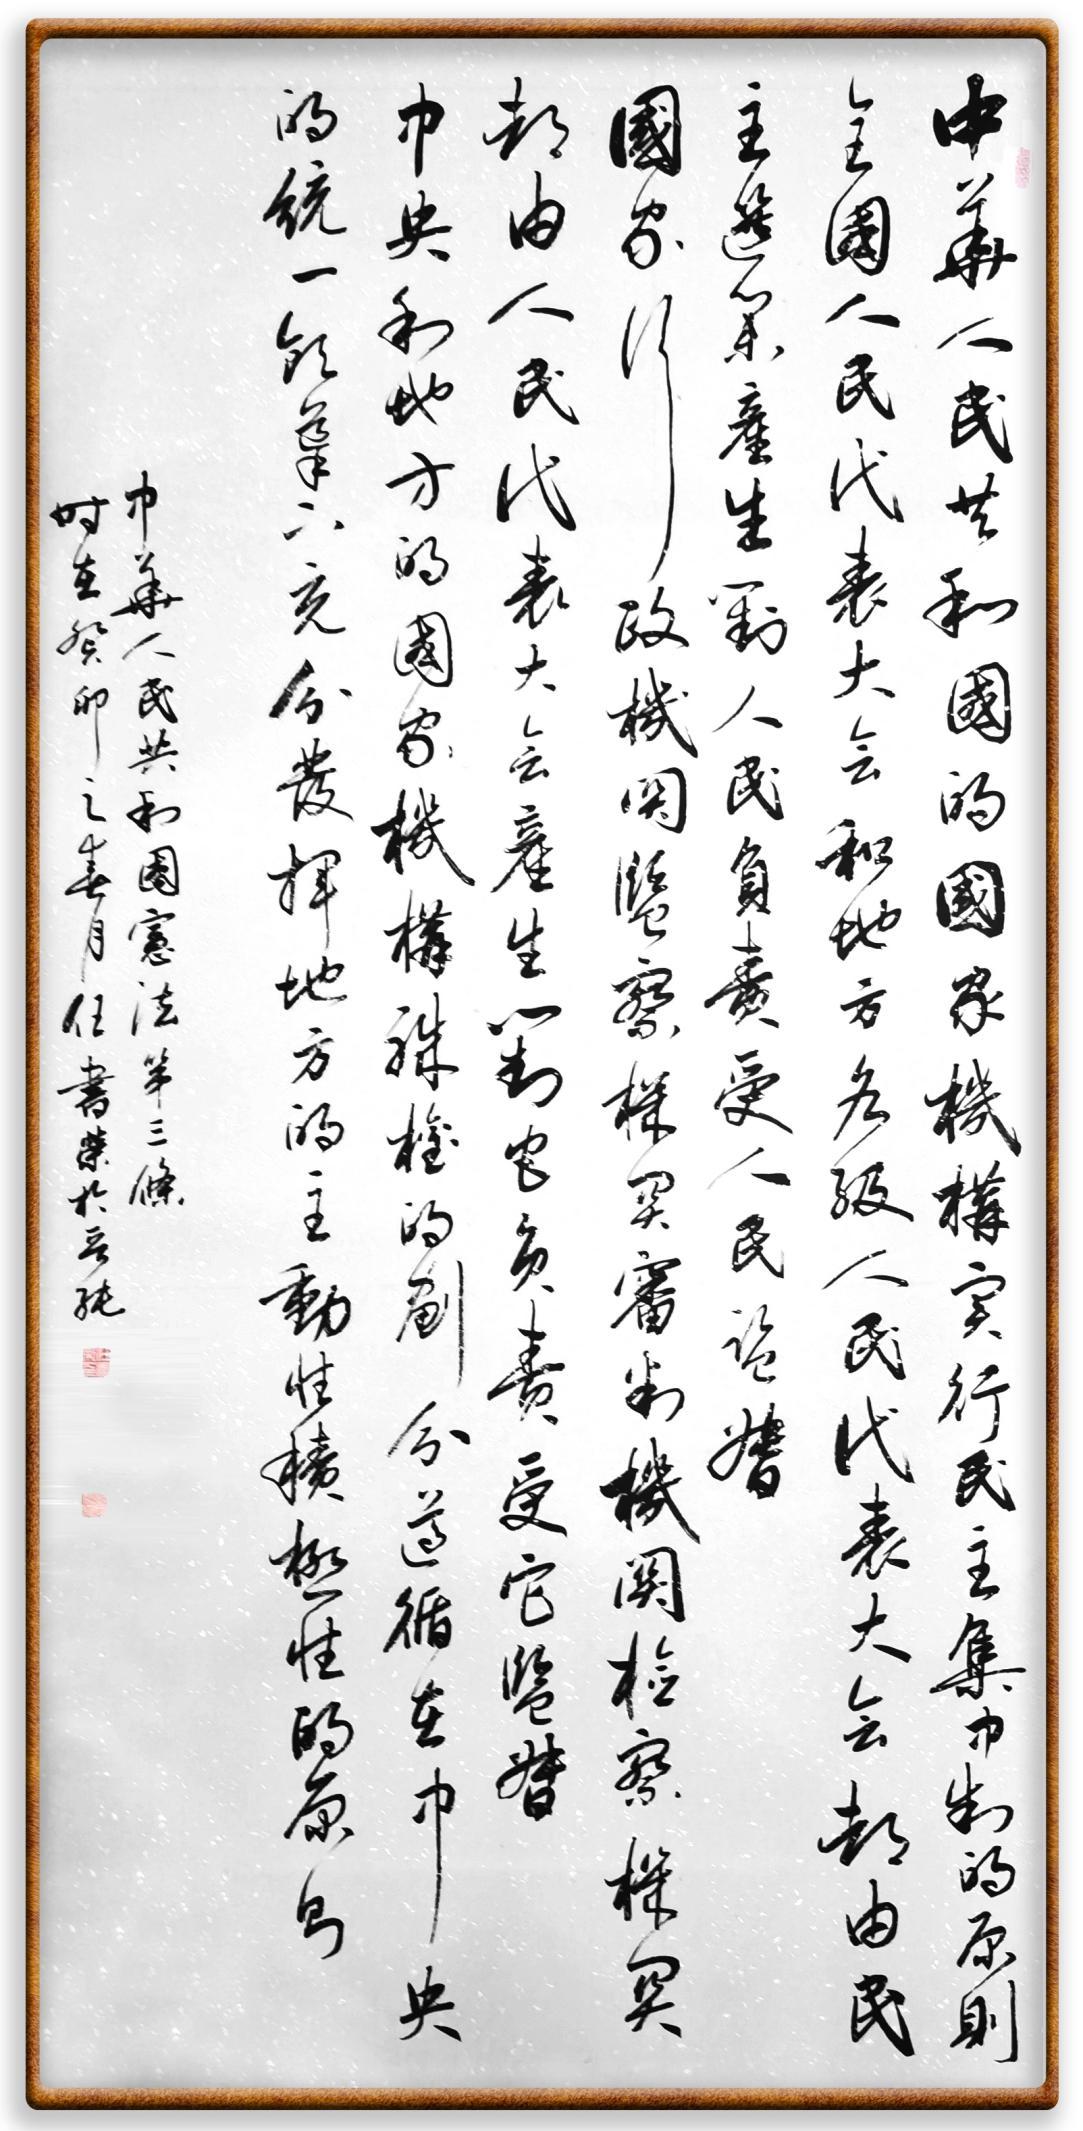 中華人民共和國的國家機構实行民主集中制的原則
全國人民代表大会和地方各级人民代表大会都由民
主選举產生對人民負責受人民监督
國家行政機関監察機関審判機関检察機関
都由人民代表大会產生對它負責受它監督
中央和地方的國家機構職權的劃分遵循在中央
的統一領導下充分發揮地方的主動性積極性的原則
中華人民共和國憲法第三條
时在癸卯之春月任書榮於晉